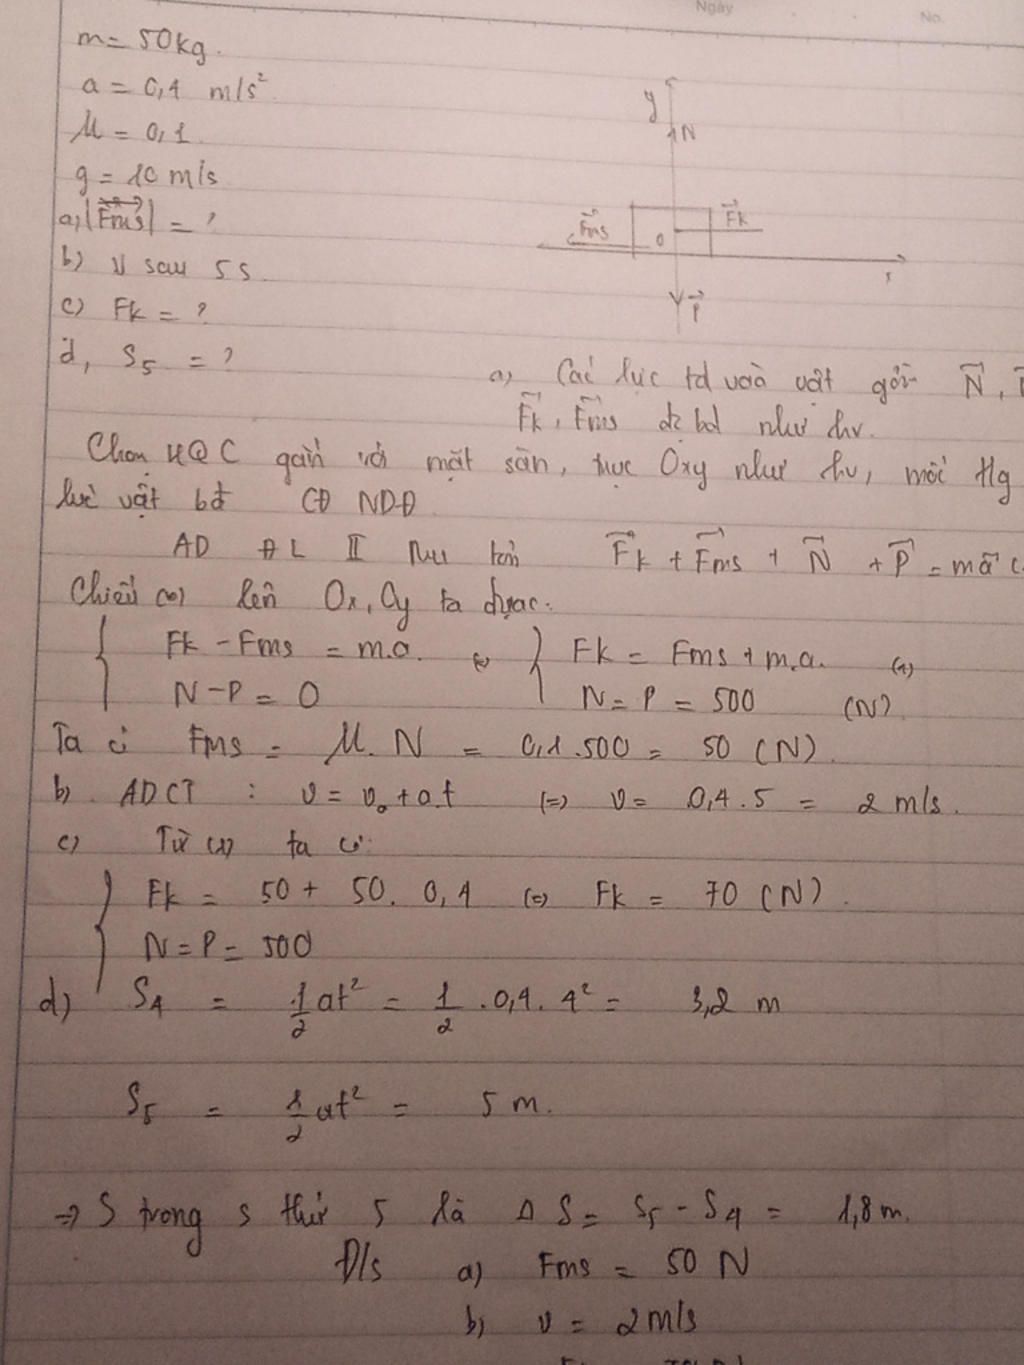 Ngày No.
m = 50kg.
a = 0,4 m/s²
y
μ = 0,1
N
g = 10 m/s
a, |Fms| = ?
Fms 0 Fk
b) v sau 5 s.
c) Fk = ?
P
d, S₅ = ?
a) Các lực td vào vật gồm N,
Fk, Fms đc bd như hv.
Chọn HQC gắn với mặt sàn, trục Oxy như hv, mốc tg
lúc vật bđ CĐ NDĐ
AD ĐL II Niu tơn Fk + Fms + N + P = ma
Chiếu (*) lên Ox, Oy ta được:
{ Fk - Fms = m.a. (=) { Fk = Fms + m.a. (1)
N - P = 0 N = P = 500 (N)
Ta có Fms = μ.N = 0,1.500 = 50 (N).
b). ADCT : v = v₀ + a.t (=) v = 0,4.5 = 2 m/s.
c) Từ (1) ta có:
{ Fk = 50 + 50. 0,4 (=) Fk = 70 (N).
N = P = 500
d) S₄ = 1/2 at² = 1/2 .0,4. 4² = 3,2 m
S₅ = 1/2 at² = 5 m.
=> S trong s thứ 5 là Δ S = S₅ - S₄ = 1,8 m.
Đ/s a) Fms = 50 N
b) v = 2 m/s